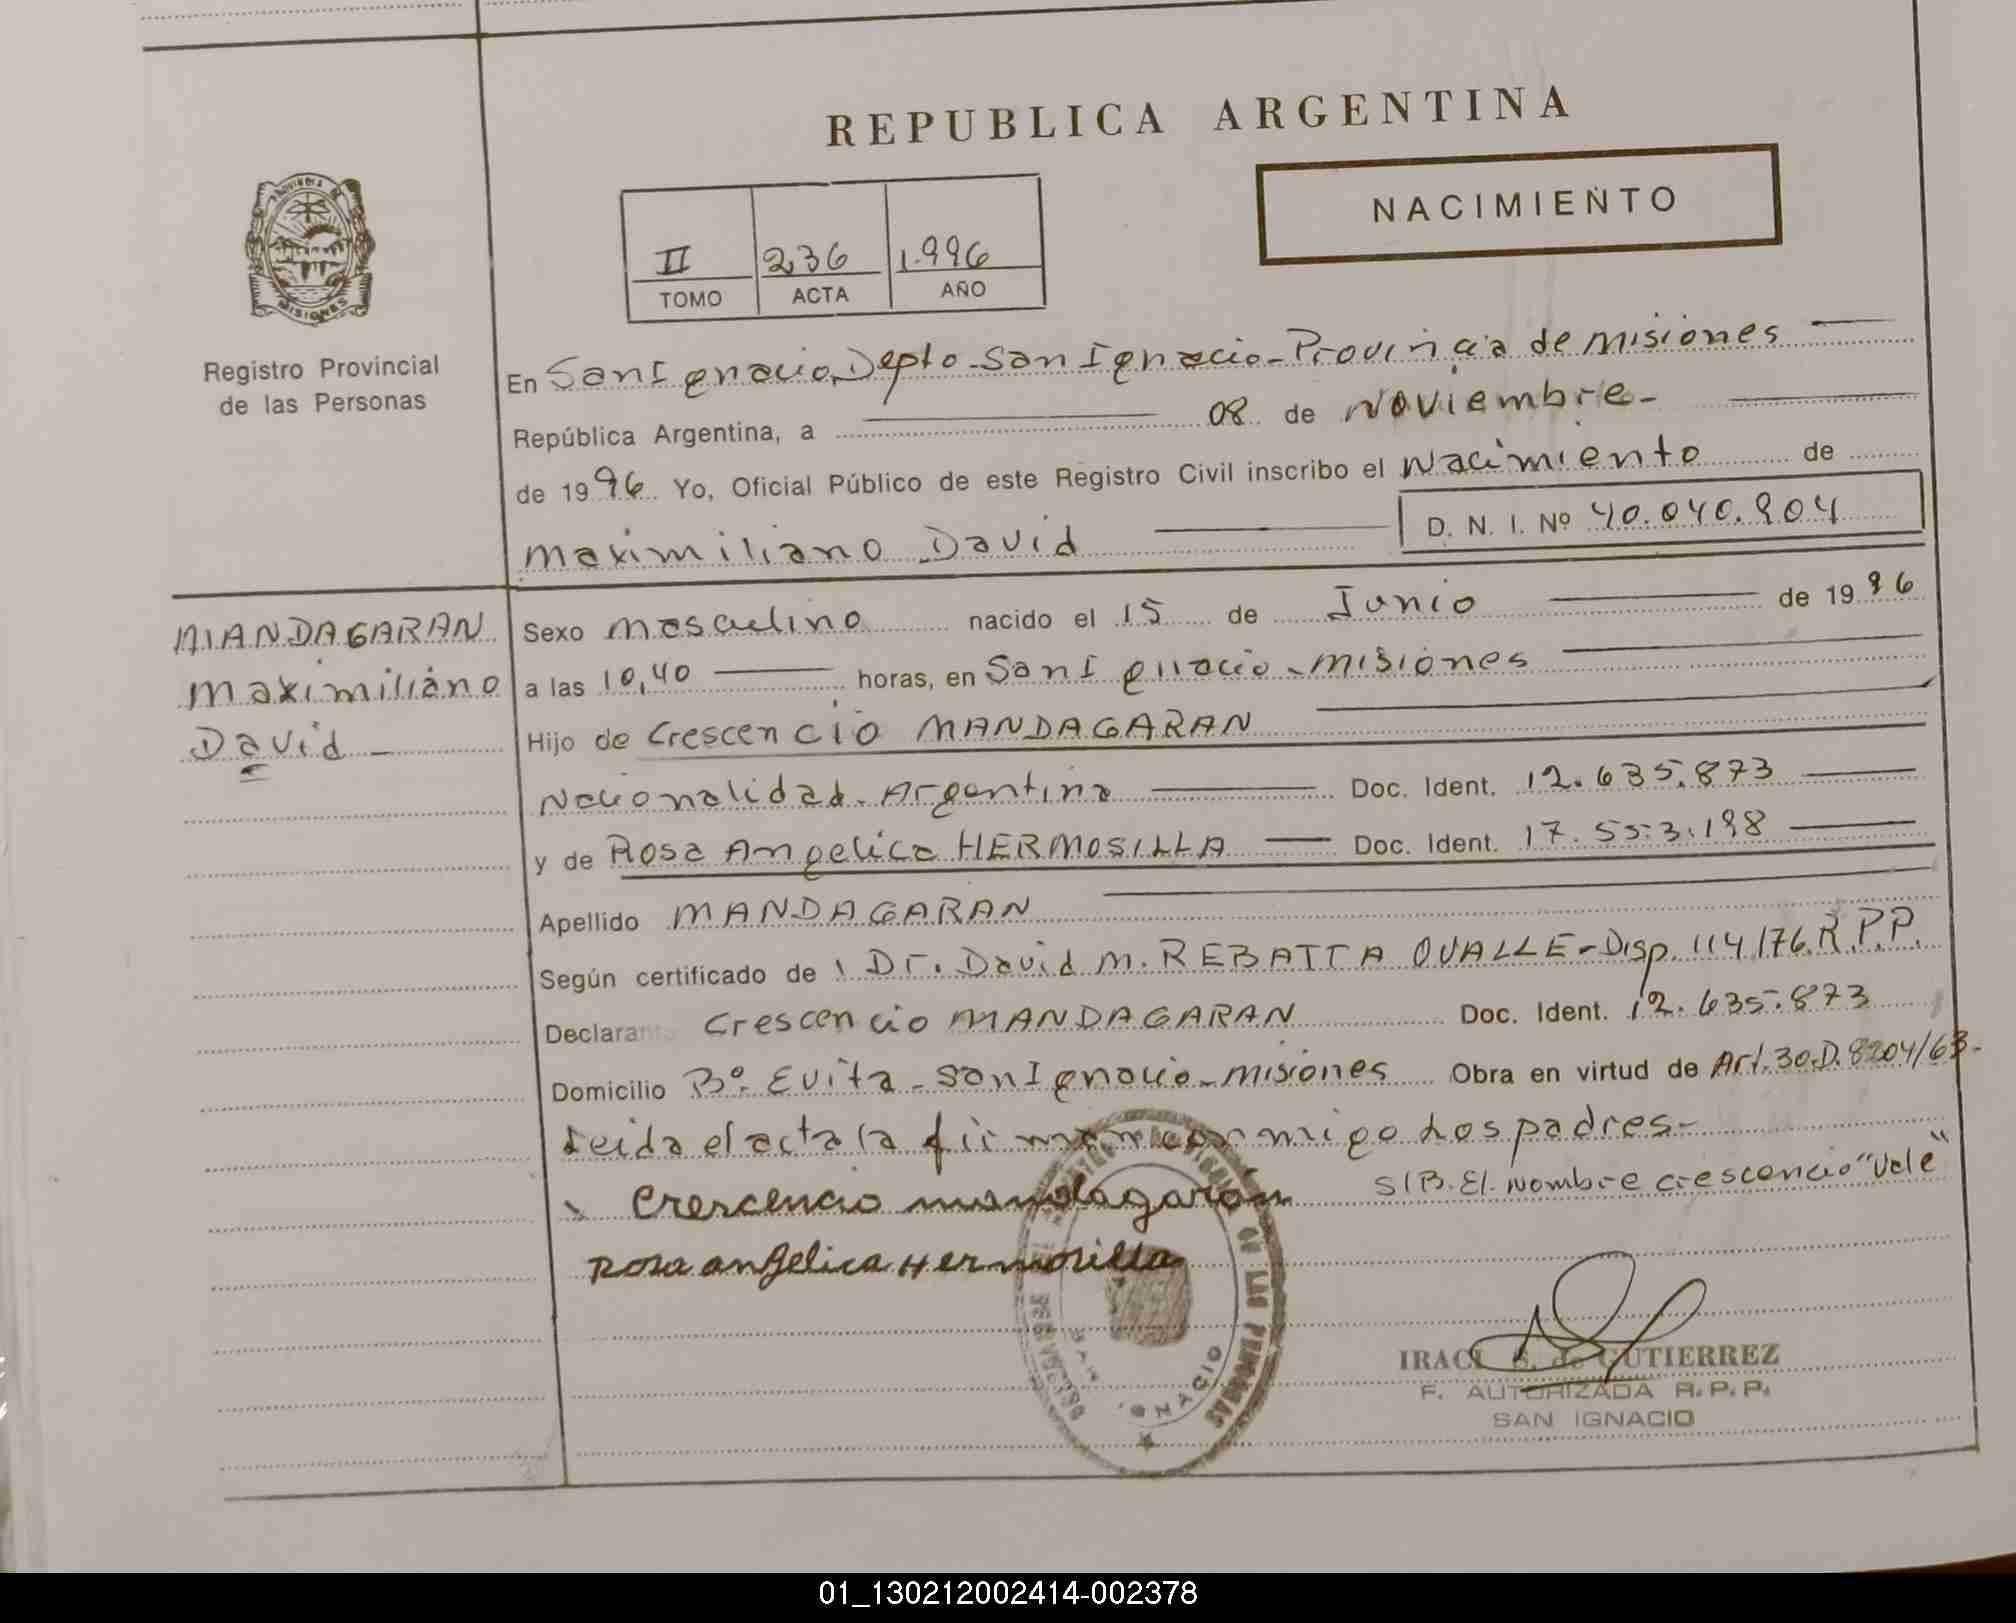 REPUBLICA ARGENTINA
NACIMIENTO
II 236 1.996
TOMO ACTA AÑO
PROVINCIA DE MISIONES
Registro Provincial
de las Personas
En San Ignacio, Depto- San Ignacio- Provincia de Misiones
República Argentina, a 08 de Noviembre-
de 1996 Yo, Oficial Público de este Registro Civil inscribo el Nacimiento de
Maximiliano David D. N. I. Nº 40.040.904
MANDAGARAN
Maximiliano
David -
Sexo Masculino nacido el 15 de Junio de 1996
a las 10,40 horas, en San Ignacio - Misiones
Hijo de Crescencio MANDAGARAN
Nacionalidad - Argentina Doc. Ident. 12.635.873
y de Rosa Angelica HERMOSILLA Doc. Ident. 17.553.198
Apellido MANDAGARAN
Según certificado de Dr. David M. REBATTA OVALLE - Disp. 114/76 R.P.P.
Declarante Crescencio MANDAGARAN Doc. Ident. 12.635.873
Domicilio Bº. Evita - San Ignacio - Misiones Obra en virtud de Art. 30 D. 8204/63-
Leida el acta la firman conmigo los padres-
S/B. El. Nombre crescencio "Vale"
Crescencio mandagarán
Rosa angelica Hermosilla
IRACI S. de GUTIERREZ
F. AUTORIZADA R.P.P.
SAN IGNACIO
DE LAS PERSONAS
IGNACIO
01_130212002414-002378